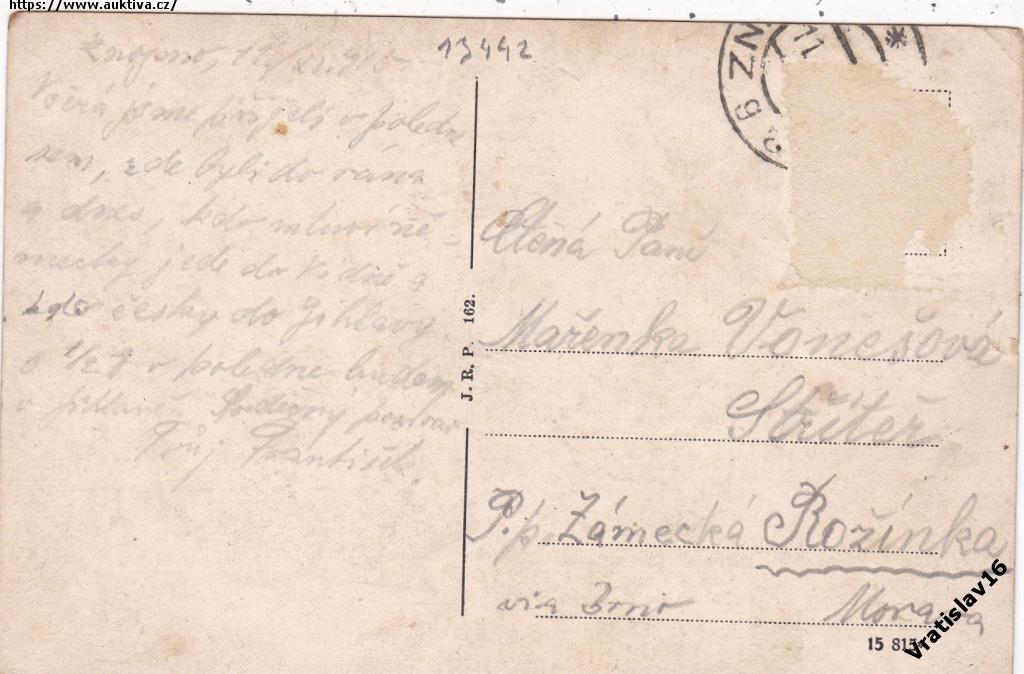 https://www.auktiva.cz/
13442
Znojmo,
Včera jsme přijeli v poledne
sem, zde byli do rána
a dnes, kdo mluví ně-
mecky jede do Vídně a
kdo česky do Jihlavy
v poledne budem
v Jihlavě. Srdečný pozdrav
Tvůj František.
J. R. P. 162.
ZN
11
Ctěná Paní
Mařenka
Střítež
P. p. Zámecká Rožínka
via Brno Morava
15 815
Vratislav16